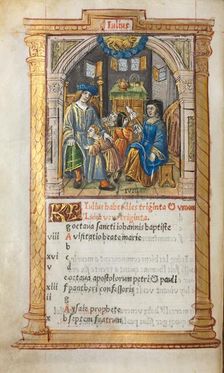 Iulius
IVLIVS
KL Iulius habet dies triginta & vnum
Luna vero triginta.
g octava sancti iohannis baptiste
viii A visitatio beate marie
b
xvi c
v d octava apostolorum petri & pauli
e
xiii f pantheni confessoris
ii g
A ysaie prophete
x b septem fratrum